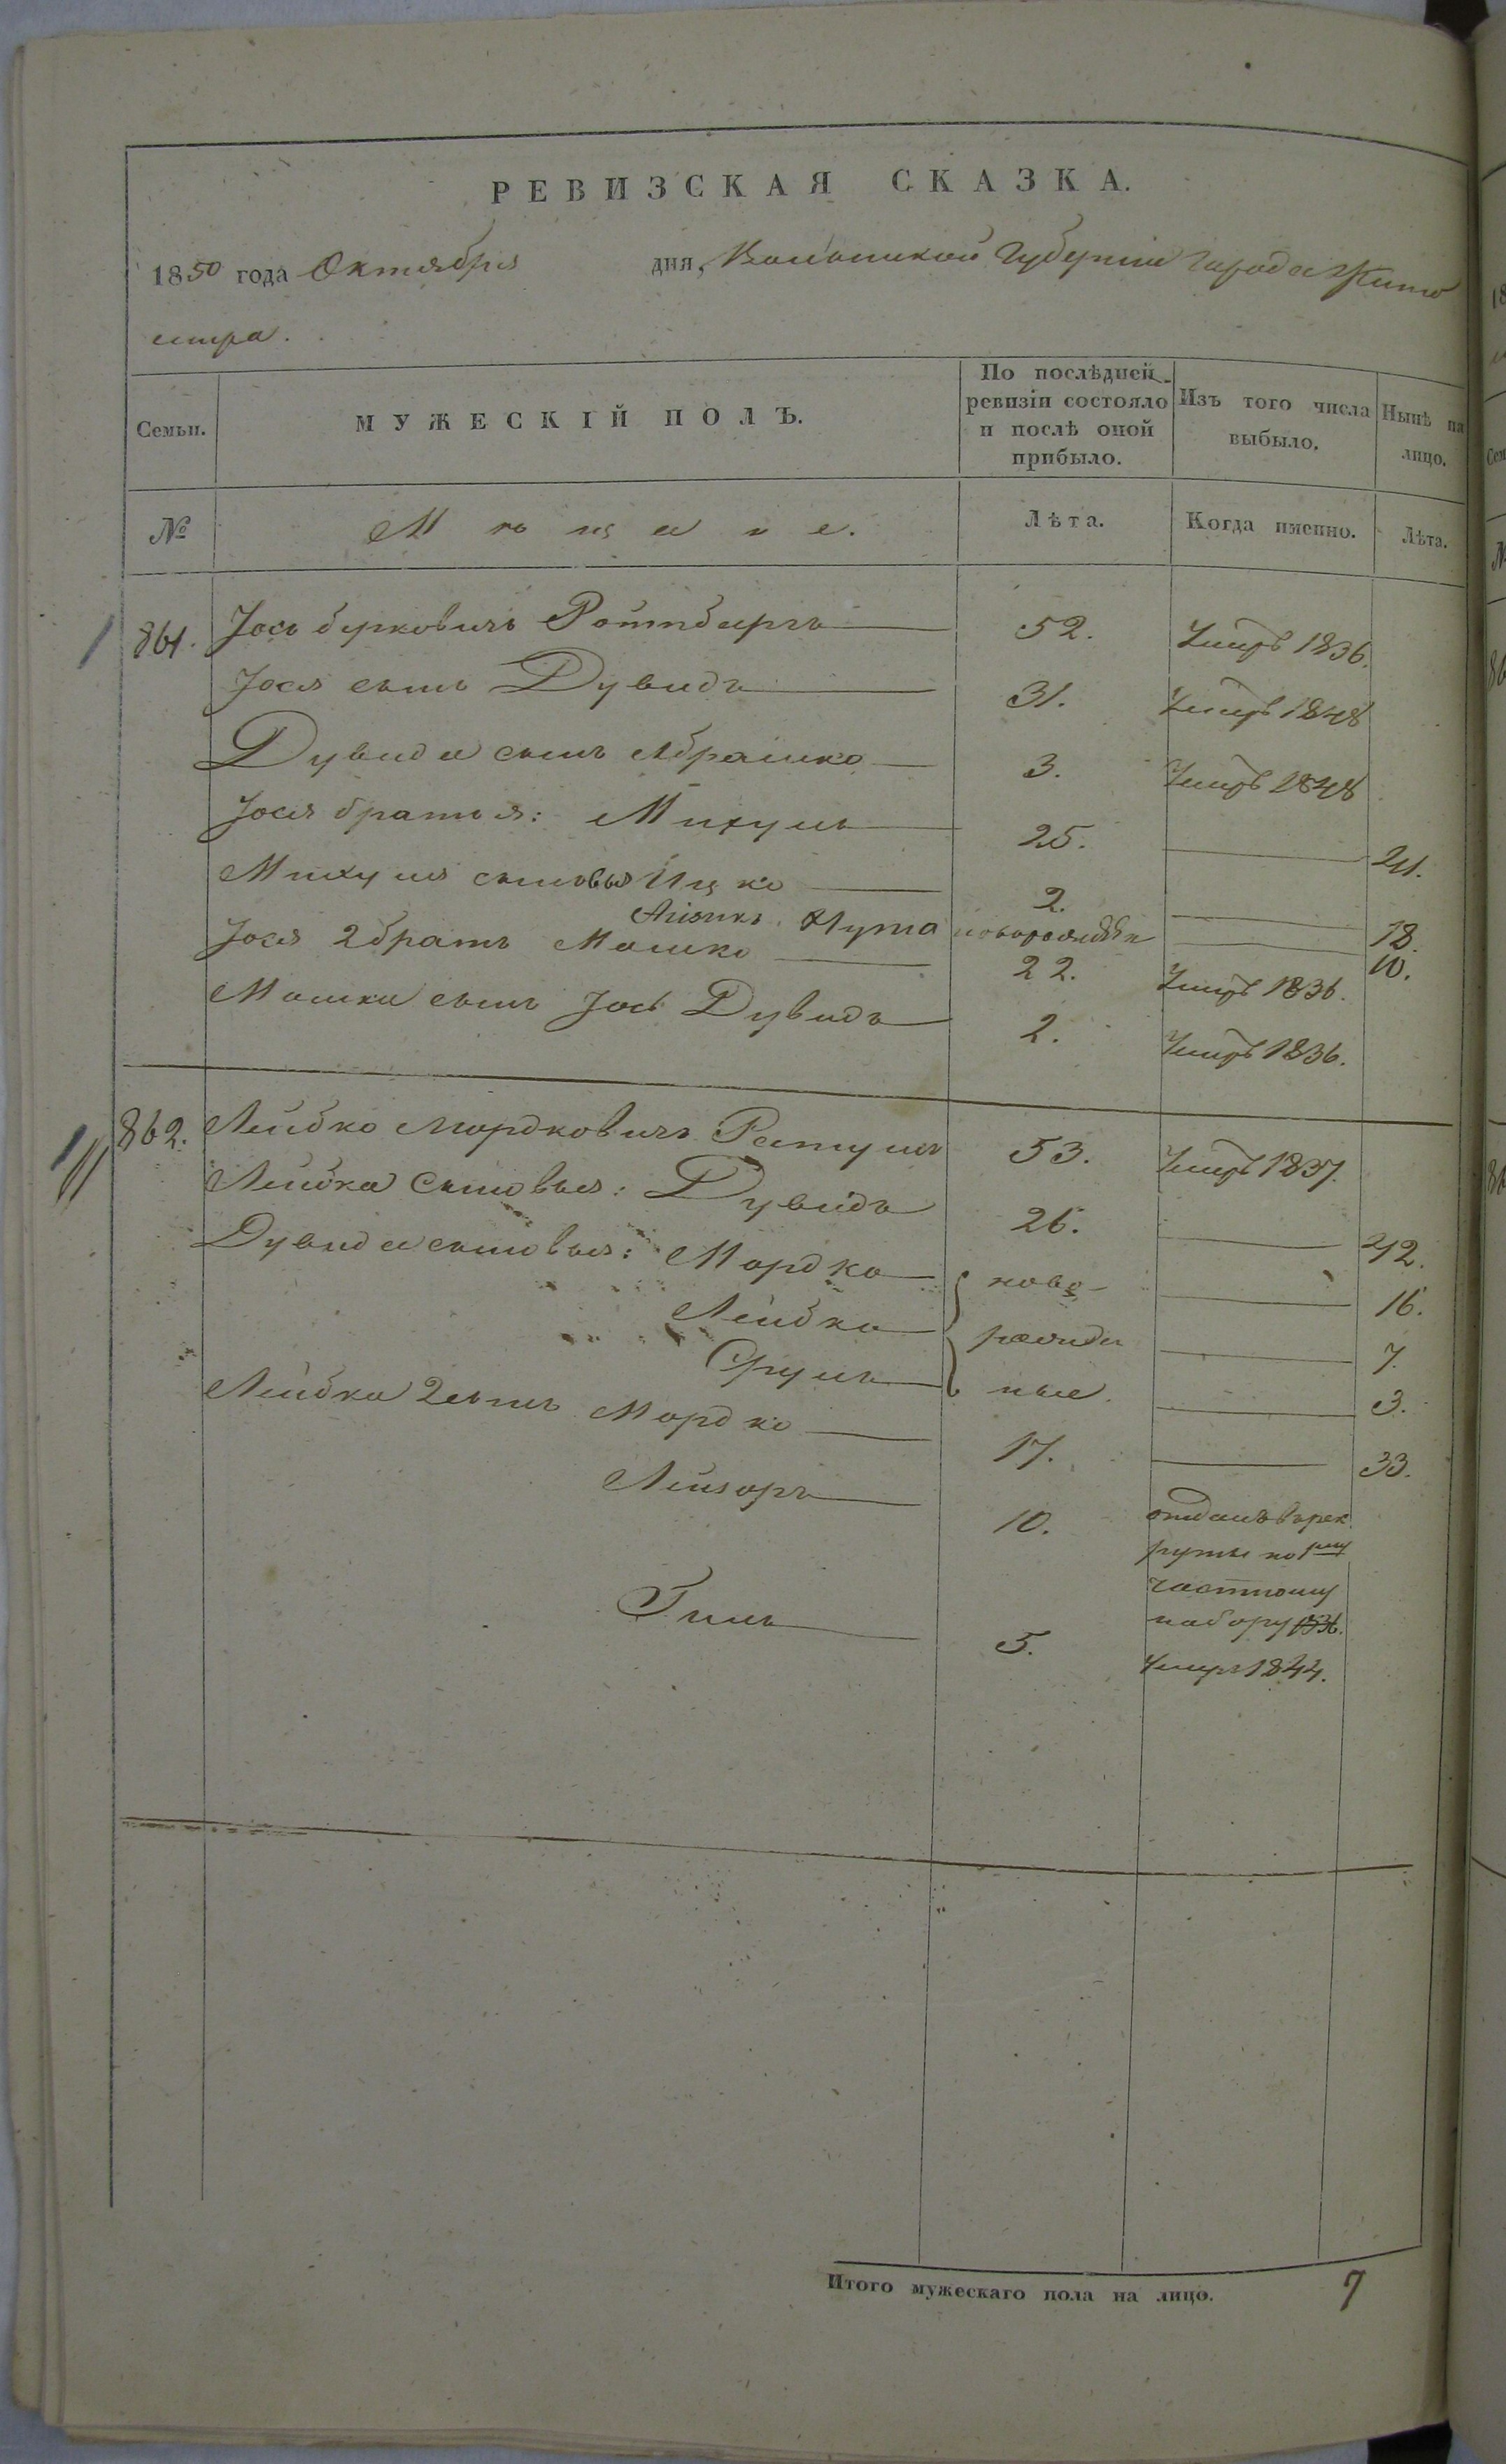 РЕВИЗСКАЯ СКАЗКА.
1850 года Октября дня, Волынской Губерніи города Жито
мира.
Семьи. МУЖЕСКІЙ ПОЛЪ. По послѣдней ревизіи состояло и послѣ оной прибыло. Изъ того числа выбыло. Нынѣ на лицо.
№ Мѣщане. Лѣта. Когда именно. Лѣта.
861. Іось Берковичъ Ротнбергъ 52. Умеръ 1836.
Іося сынъ Дувидъ 31. Умеръ 1848
Дувида сынъ Абрашко 3. Умеръ 1848
Іося братья: Михуль 25. 41.
Михуля сыновья Ицко 2. 18.
Айзикъ Нута новорожден 10.
Іося 2 братъ Мошко 22. Умеръ 1836.
Мошка сынъ Іось Дувидъ 2. Умеръ 1836.
862. Лейбко Мордковичъ Ратуш 53. Умеръ 1837.
Лейбка сыновья: Дувидъ 26. 42.
Дувида сыновья: Мордко ново- 16.
Лейбко рожден 7.
Сруль ные. 3.
Лейбка 2 сынъ Мордко 17. 33.
Лейзоръ 10. отданъ в рек
руты по 1му
частному
набору 1836.
Гиль 5. Умеръ 1844.
Итого мужескаго пола на лицо. 7